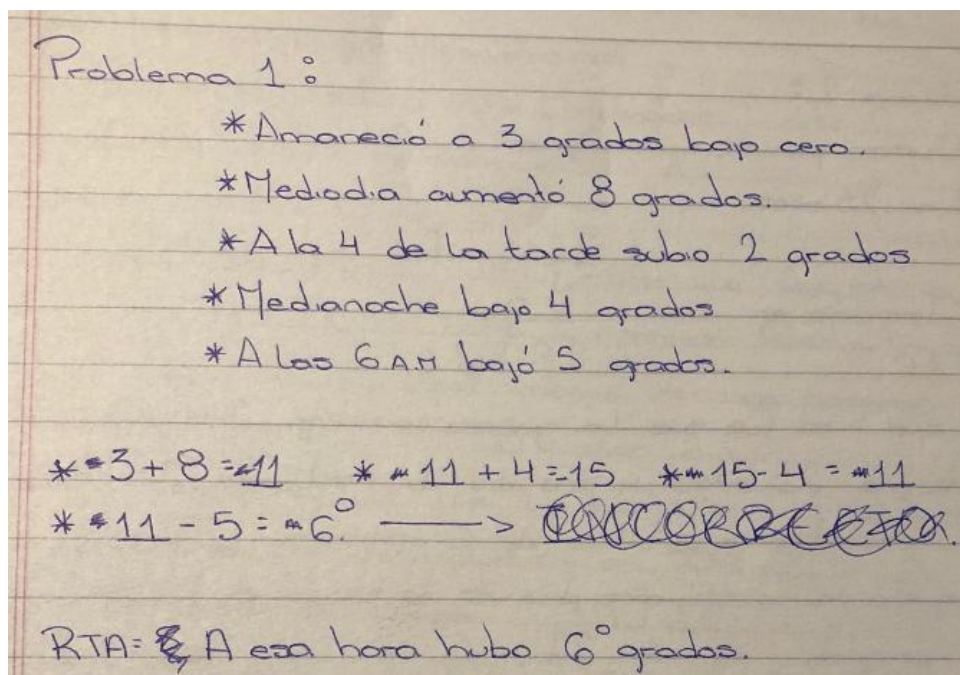 Problema 1:
* Amaneció a 3 grados bajo cero.
* Mediodia aumentó 8 grados.
* A la 4 de la tarde subio 2 grados
* Medianoche bajo 4 grados
* A las 6 A.M bajó 5 grados.
* -3 + 8 = -11 * - 11 + 4 = 15 * - 15 - 4 = - 11
* - 11 - 5 = - 6° →
RTA= A esa hora hubo 6° grados.